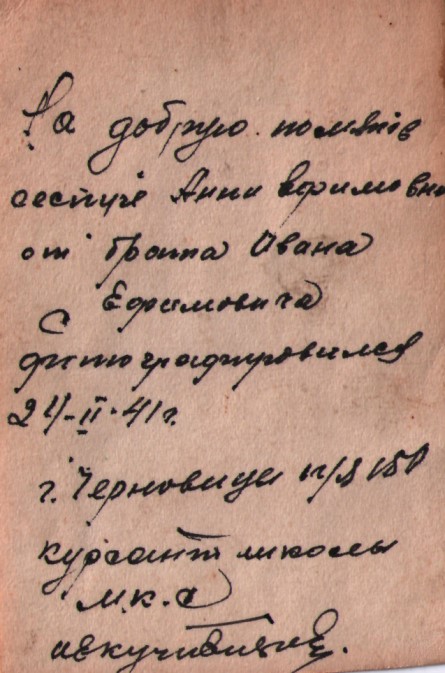 На добрую память
сестрице Анни Ефимовны
от брата Ивана
Ефимовича
Сфотографировался
24-II-41 г.
г. Черновицы п/я 150
курсант школы
М.К.А